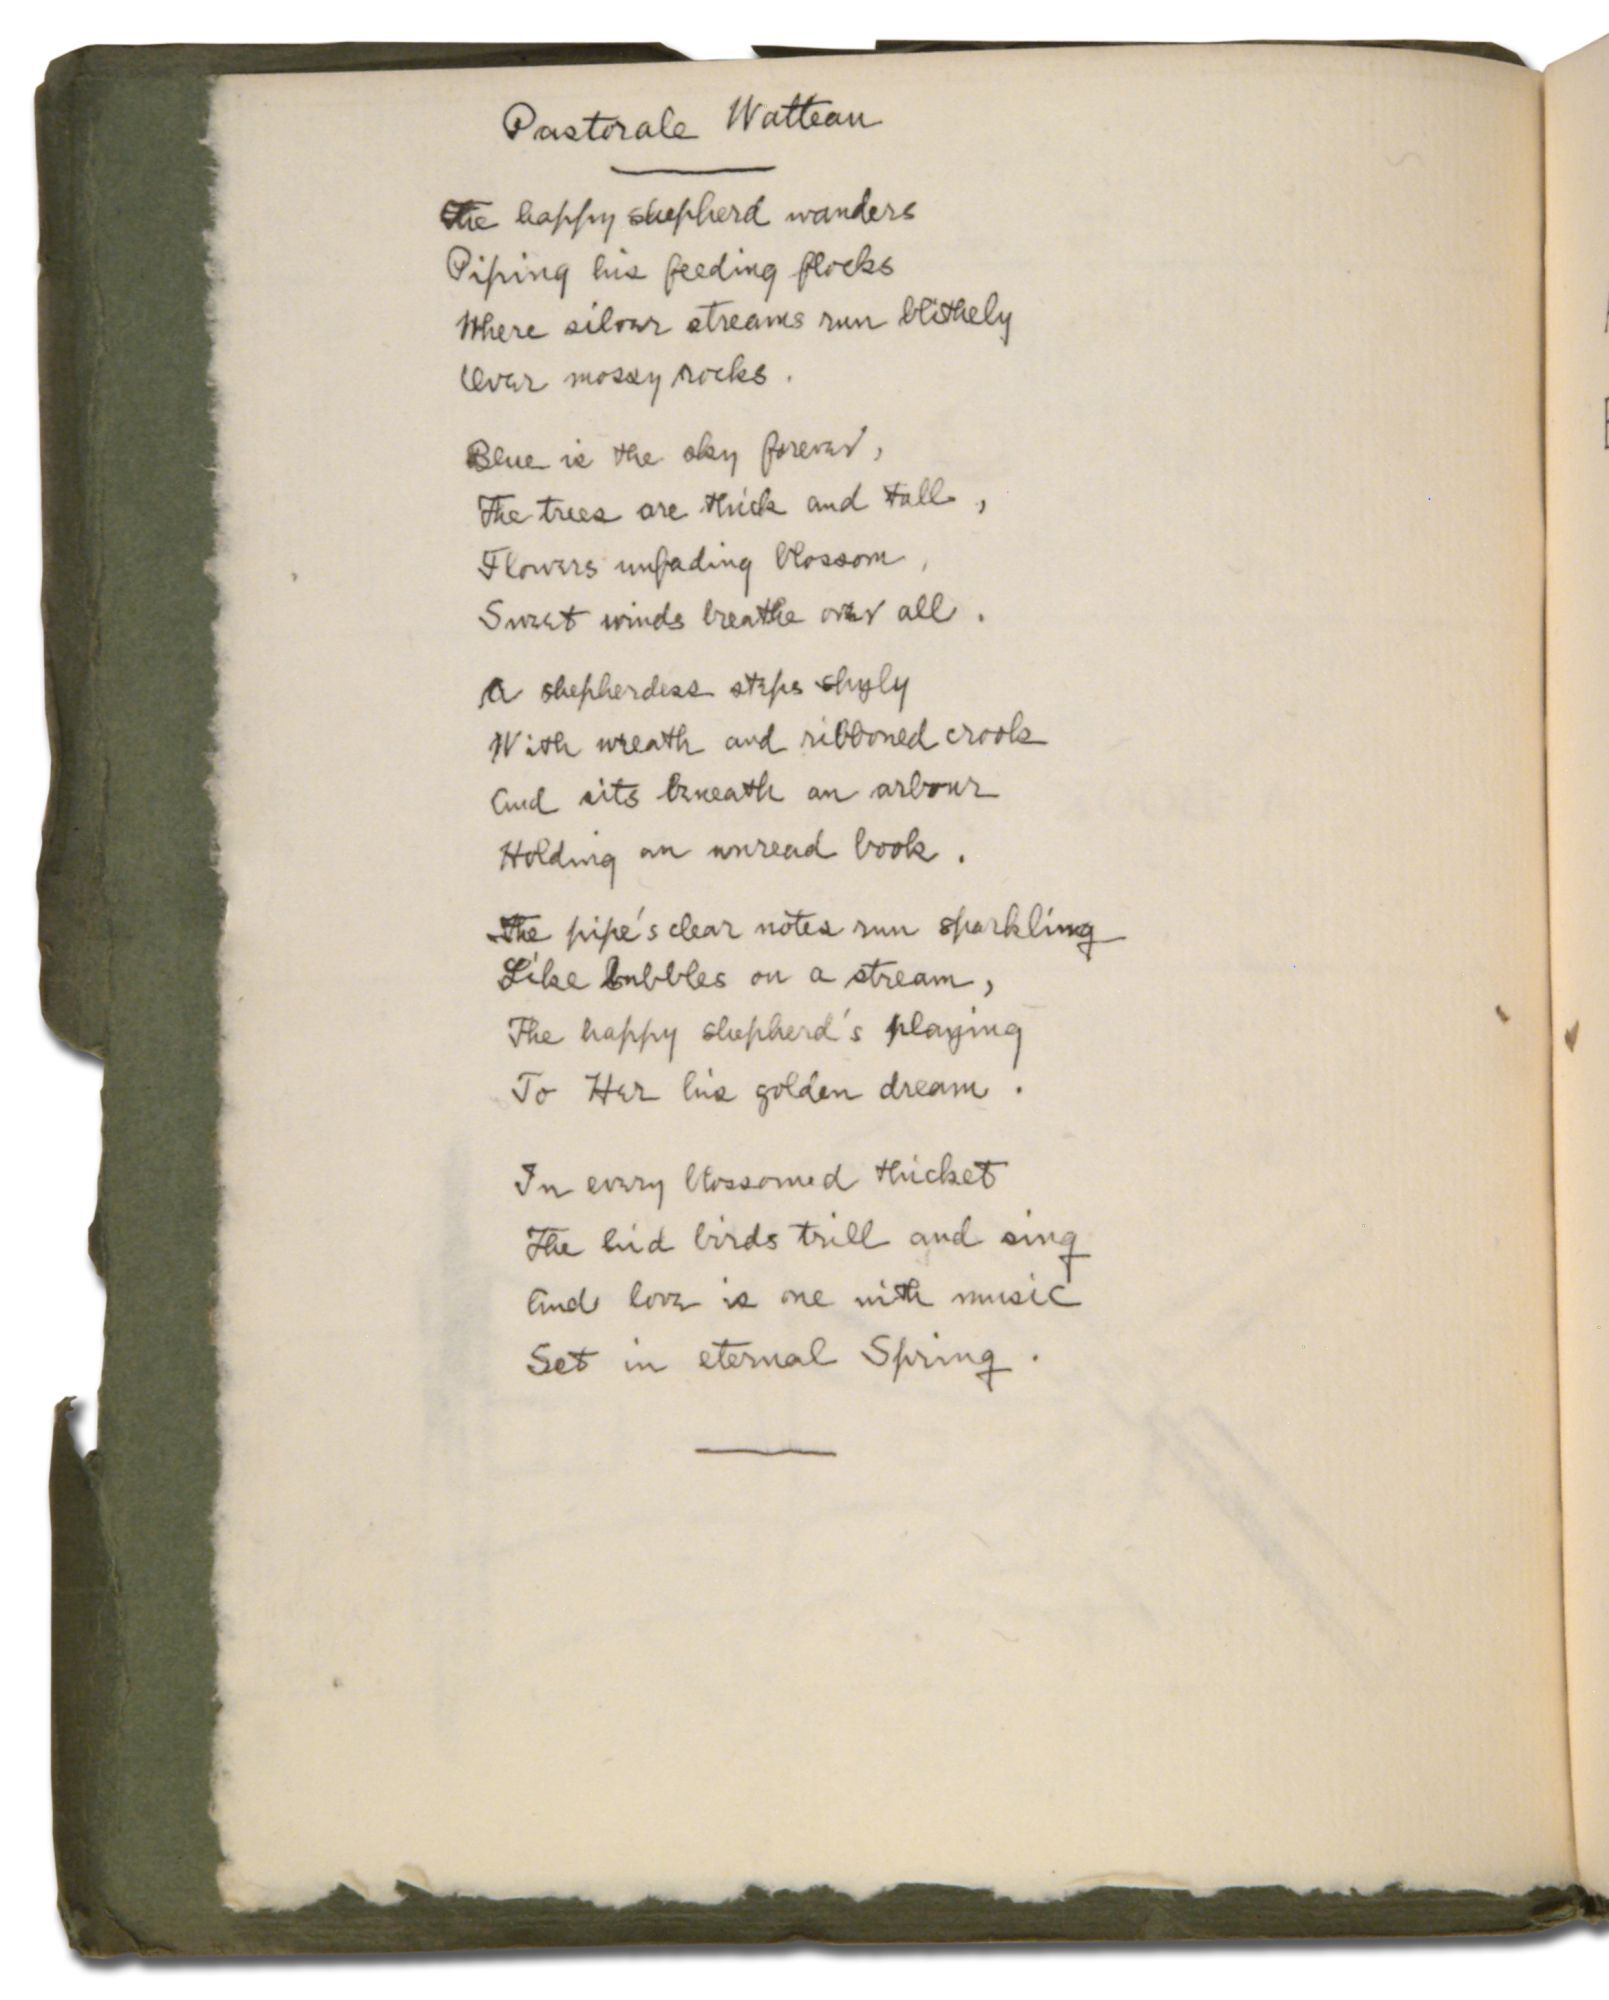 Pastorale Watteau
The happy shepherd wanders
Piping his feeding flocks
Where silver streams run blithely
Over mossy rocks.
Blue is the sky forever,
The trees are thick and tall,
Flowers unfading blossom,
Sweet winds breathe over all.
A shepherdess steps shyly
With wreath and ribboned crook
And sits beneath an arbour
Holding an unread book.
The pipe's clear notes run sparkling
Like bubbles on a stream,
The happy shepherd's playing
To Her his golden dream.
In every blossomed thicket
The hid birds trill and sing
And love is one with music
Set in eternal Spring.